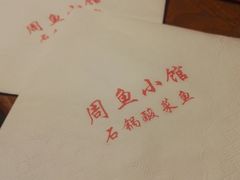 周鱼小馆
石
周鱼小馆
石锅酸菜鱼